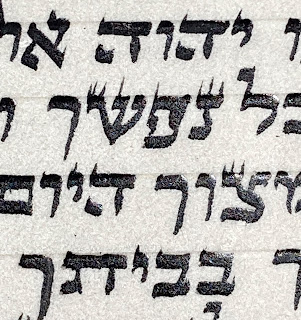 יהוה אל
כל נפשך ו
מצוך היום
ך בביתך